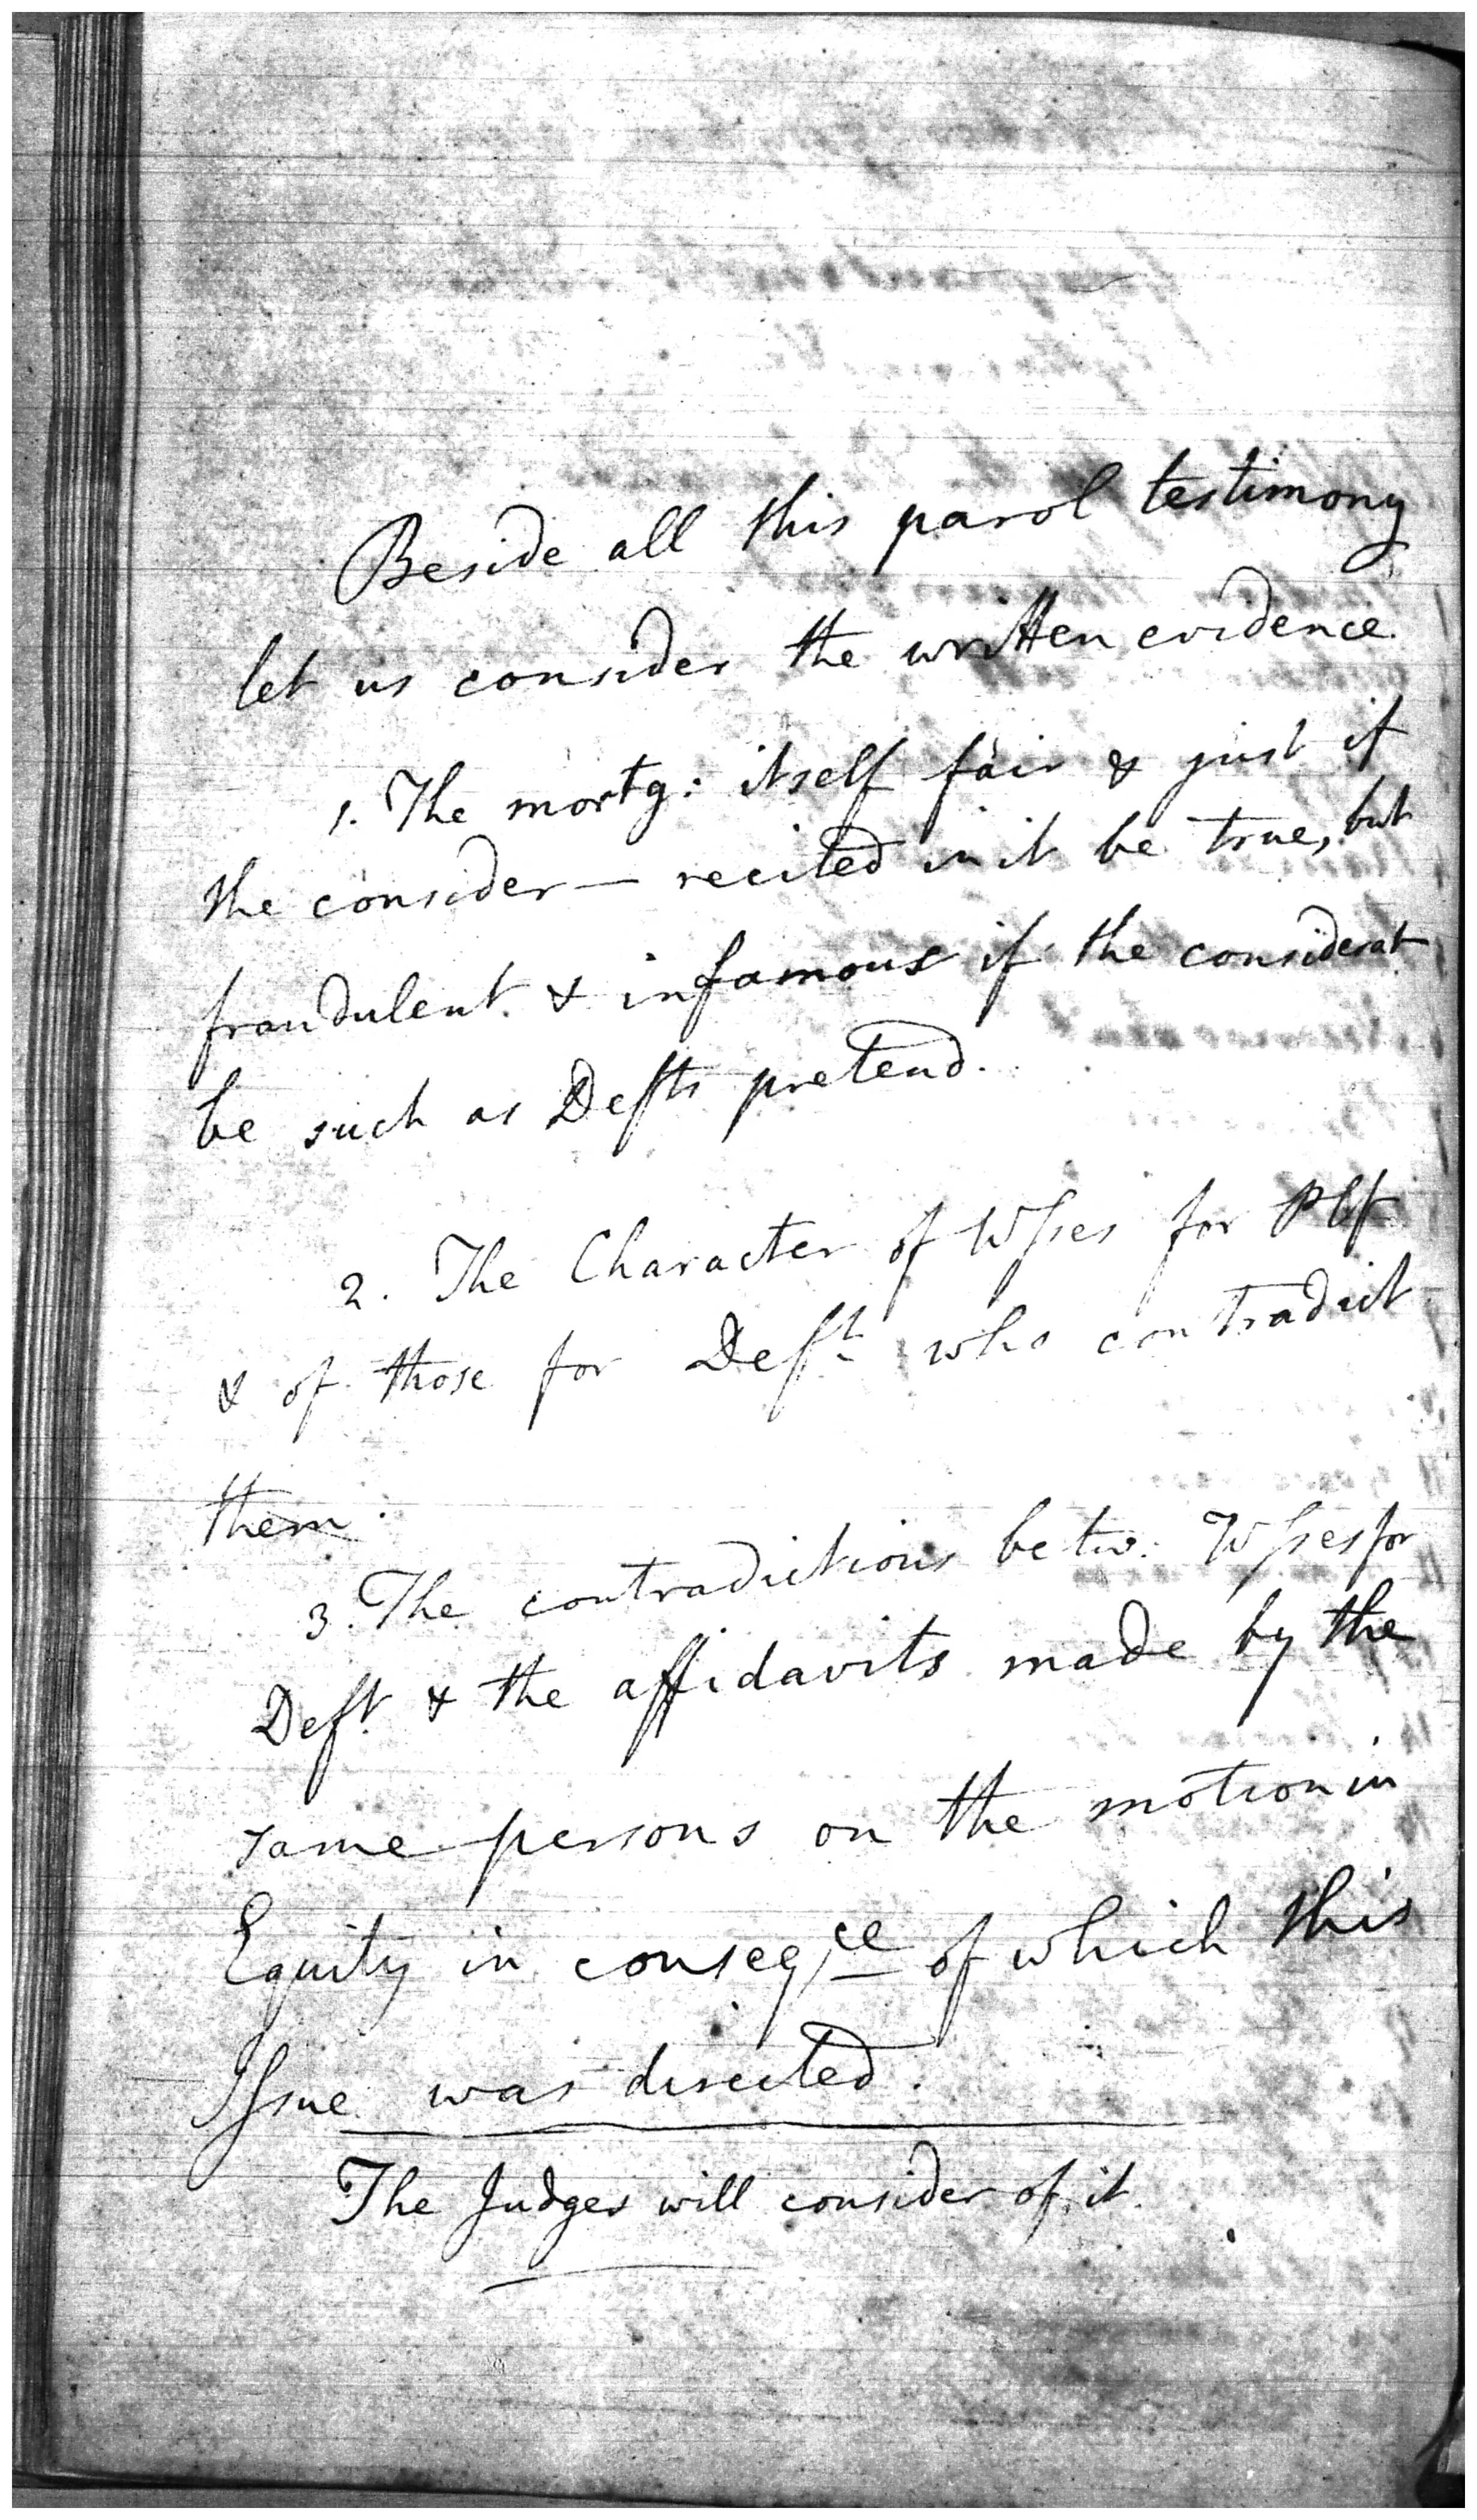 Beside all this parol testimony
let us consider the written evidence.
1. The mortg: itself fair & just if
the consider— recited in it be true, but
fraudulent & infamous if the considerat
be such as Defts pretend.
2. The Character of Wſses for Plff
& of those for Deft who contradict
them.
3. The contradictions betw: Wſses for
Deft & the affidavits made by the
same persons on the motion in
Equity in conseqce of which this
Iſsue was directed.
The Judges will consider of it.